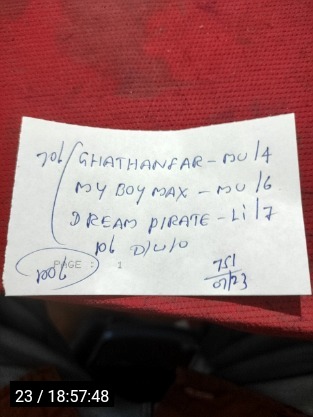 70/ GHATHANFAR - MU/4
MY BOY MAX - MU/6
DREAM PIRATE - Li/7
10/ D/U/O
PAGE : 1
200/
751
07/23
23 / 18:57:48